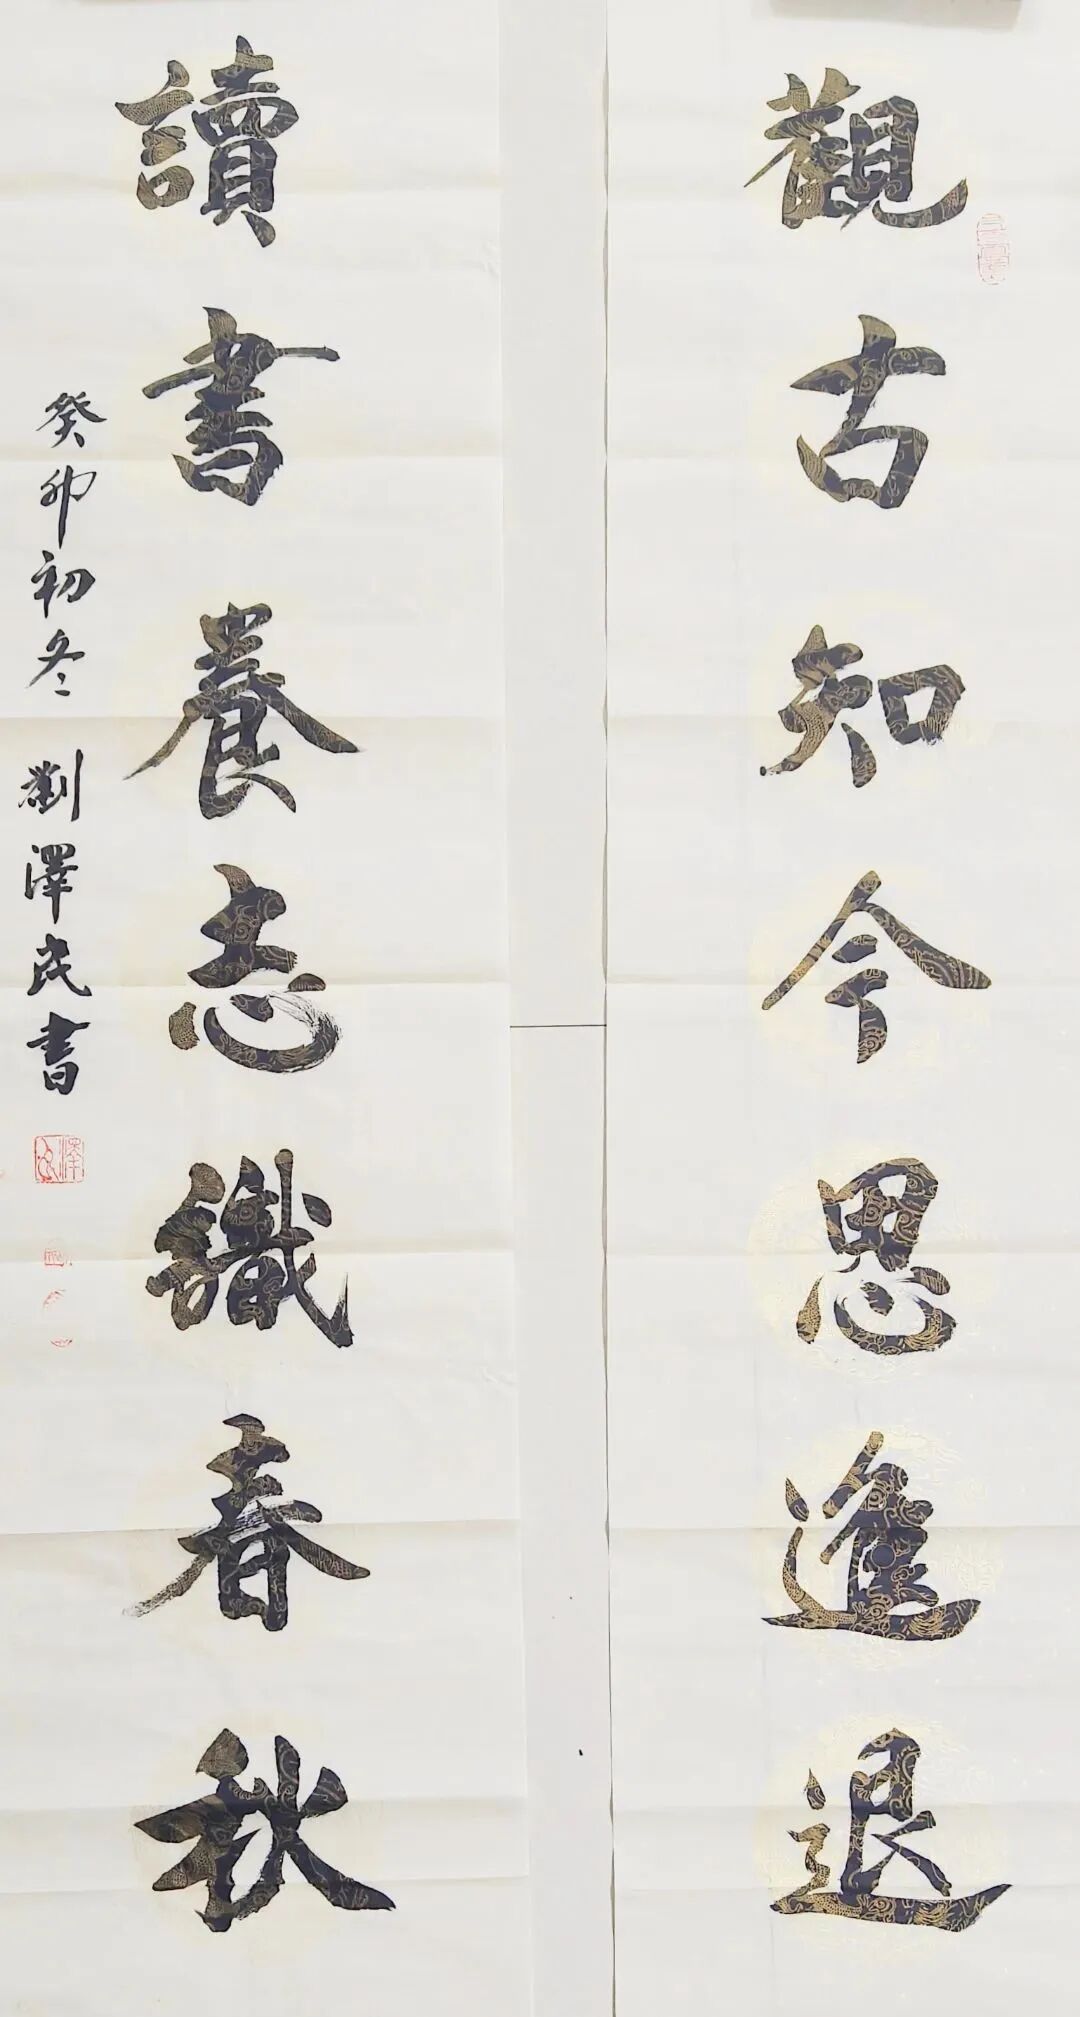 觀古知今思進退
讀書養志識春秋
癸卯初冬 劉澤民書
澤民